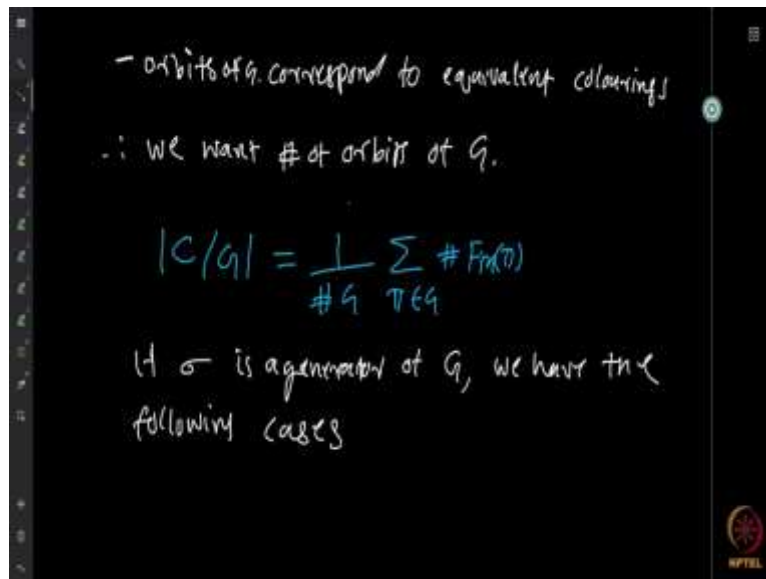 - orbits of G. correspond to equivalent colourings
∴ we want # of orbits of G.
|C/G| = 1/#G Σ π∈G # Fix(π)
If σ is a generator of G, we have the
following cases
NPTEL